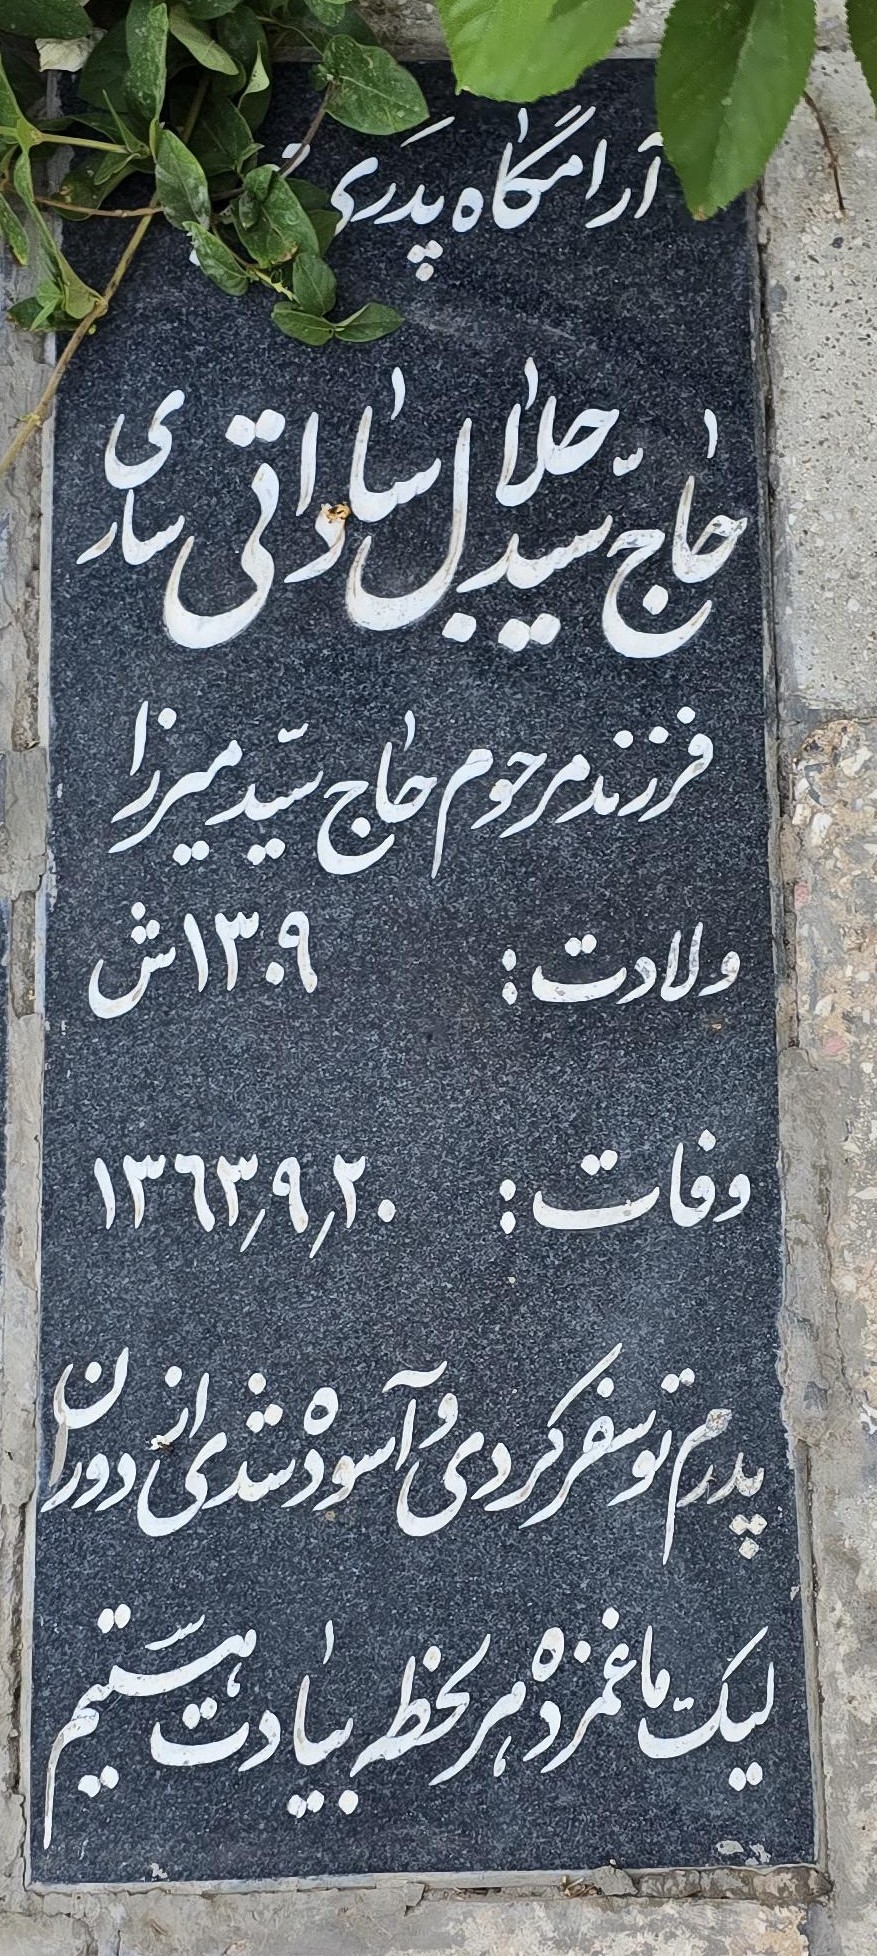 آرامگاه پدری
حاج سید جلال ساداتی ساری
فرزند مرحوم حاج سید میرزا
ولادت: ۱۳۰۹ ش
وفات: ۱۳۶۳٫۹٫۲۰
پدرم تو سفر کردی و آسوده شدی از دوران
لیک ما غمزده هر لحظه بیادت هستیم